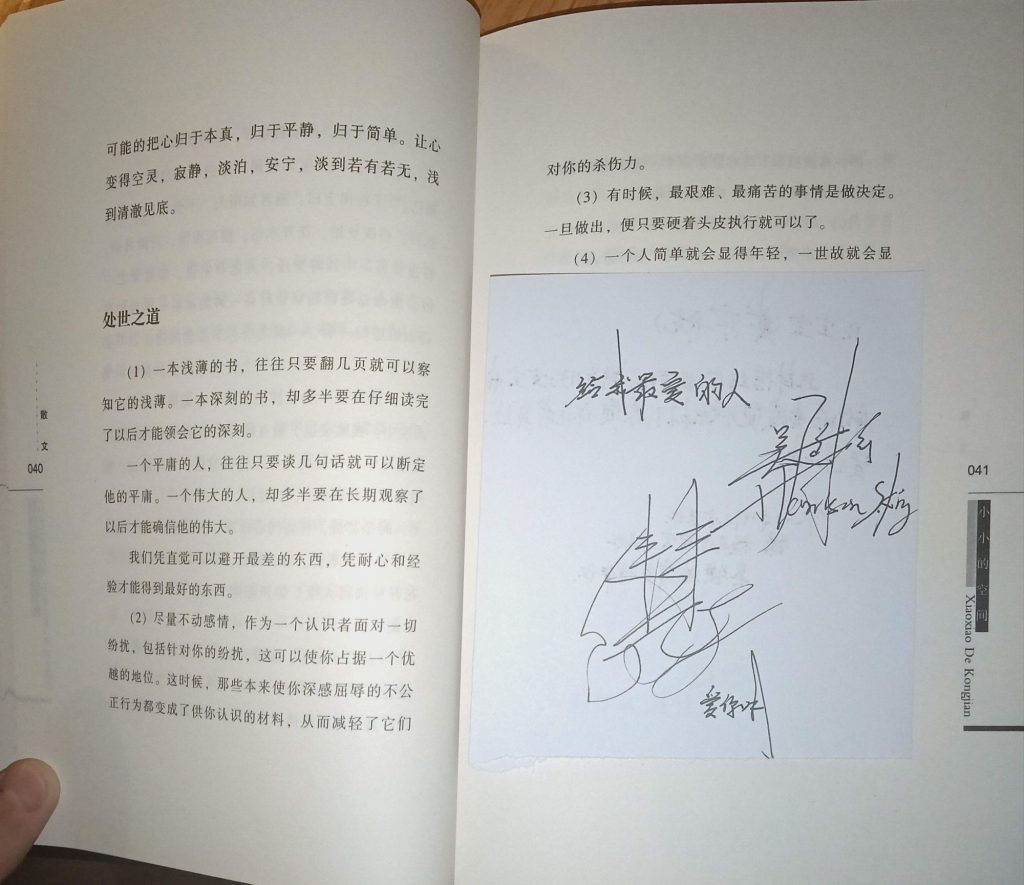 可能的把心归于本真，归于平静，归于简单。让心
变得空灵，寂静，淡泊，安宁，淡到若有若无，浅
到清澈见底。
处世之道
（1）一本浅薄的书，往往只要翻几页就可以察
知它的浅薄。一本深刻的书，却多半要在仔细读完
了以后才能领会它的深刻。
一个平庸的人，往往只要谈几句话就可以断定
他的平庸。一个伟大的人，却多半要在长期观察了
以后才能确信他的伟大。
我们凭直觉可以避开最差的东西，凭耐心和经
验才能得到最好的东西。
（2）尽量不动感情，作为一个认识者面对一切
纷扰，包括针对你的纷扰，这可以使你占据一个优
越的地位。这时候，那些本来使你深感屈辱的不公
正行为都变成了供你认识的材料，从而减轻了它们
散文
040
对你的杀伤力。
（3）有时候，最艰难、最痛苦的事情是做决定。
一旦做出，便只要硬着头皮执行就可以了。
（4）一个人简单就会显得年轻，一世故就会显
给我最爱的人
爱你
041
小小的空间
Xiaoxiao De Kongjian